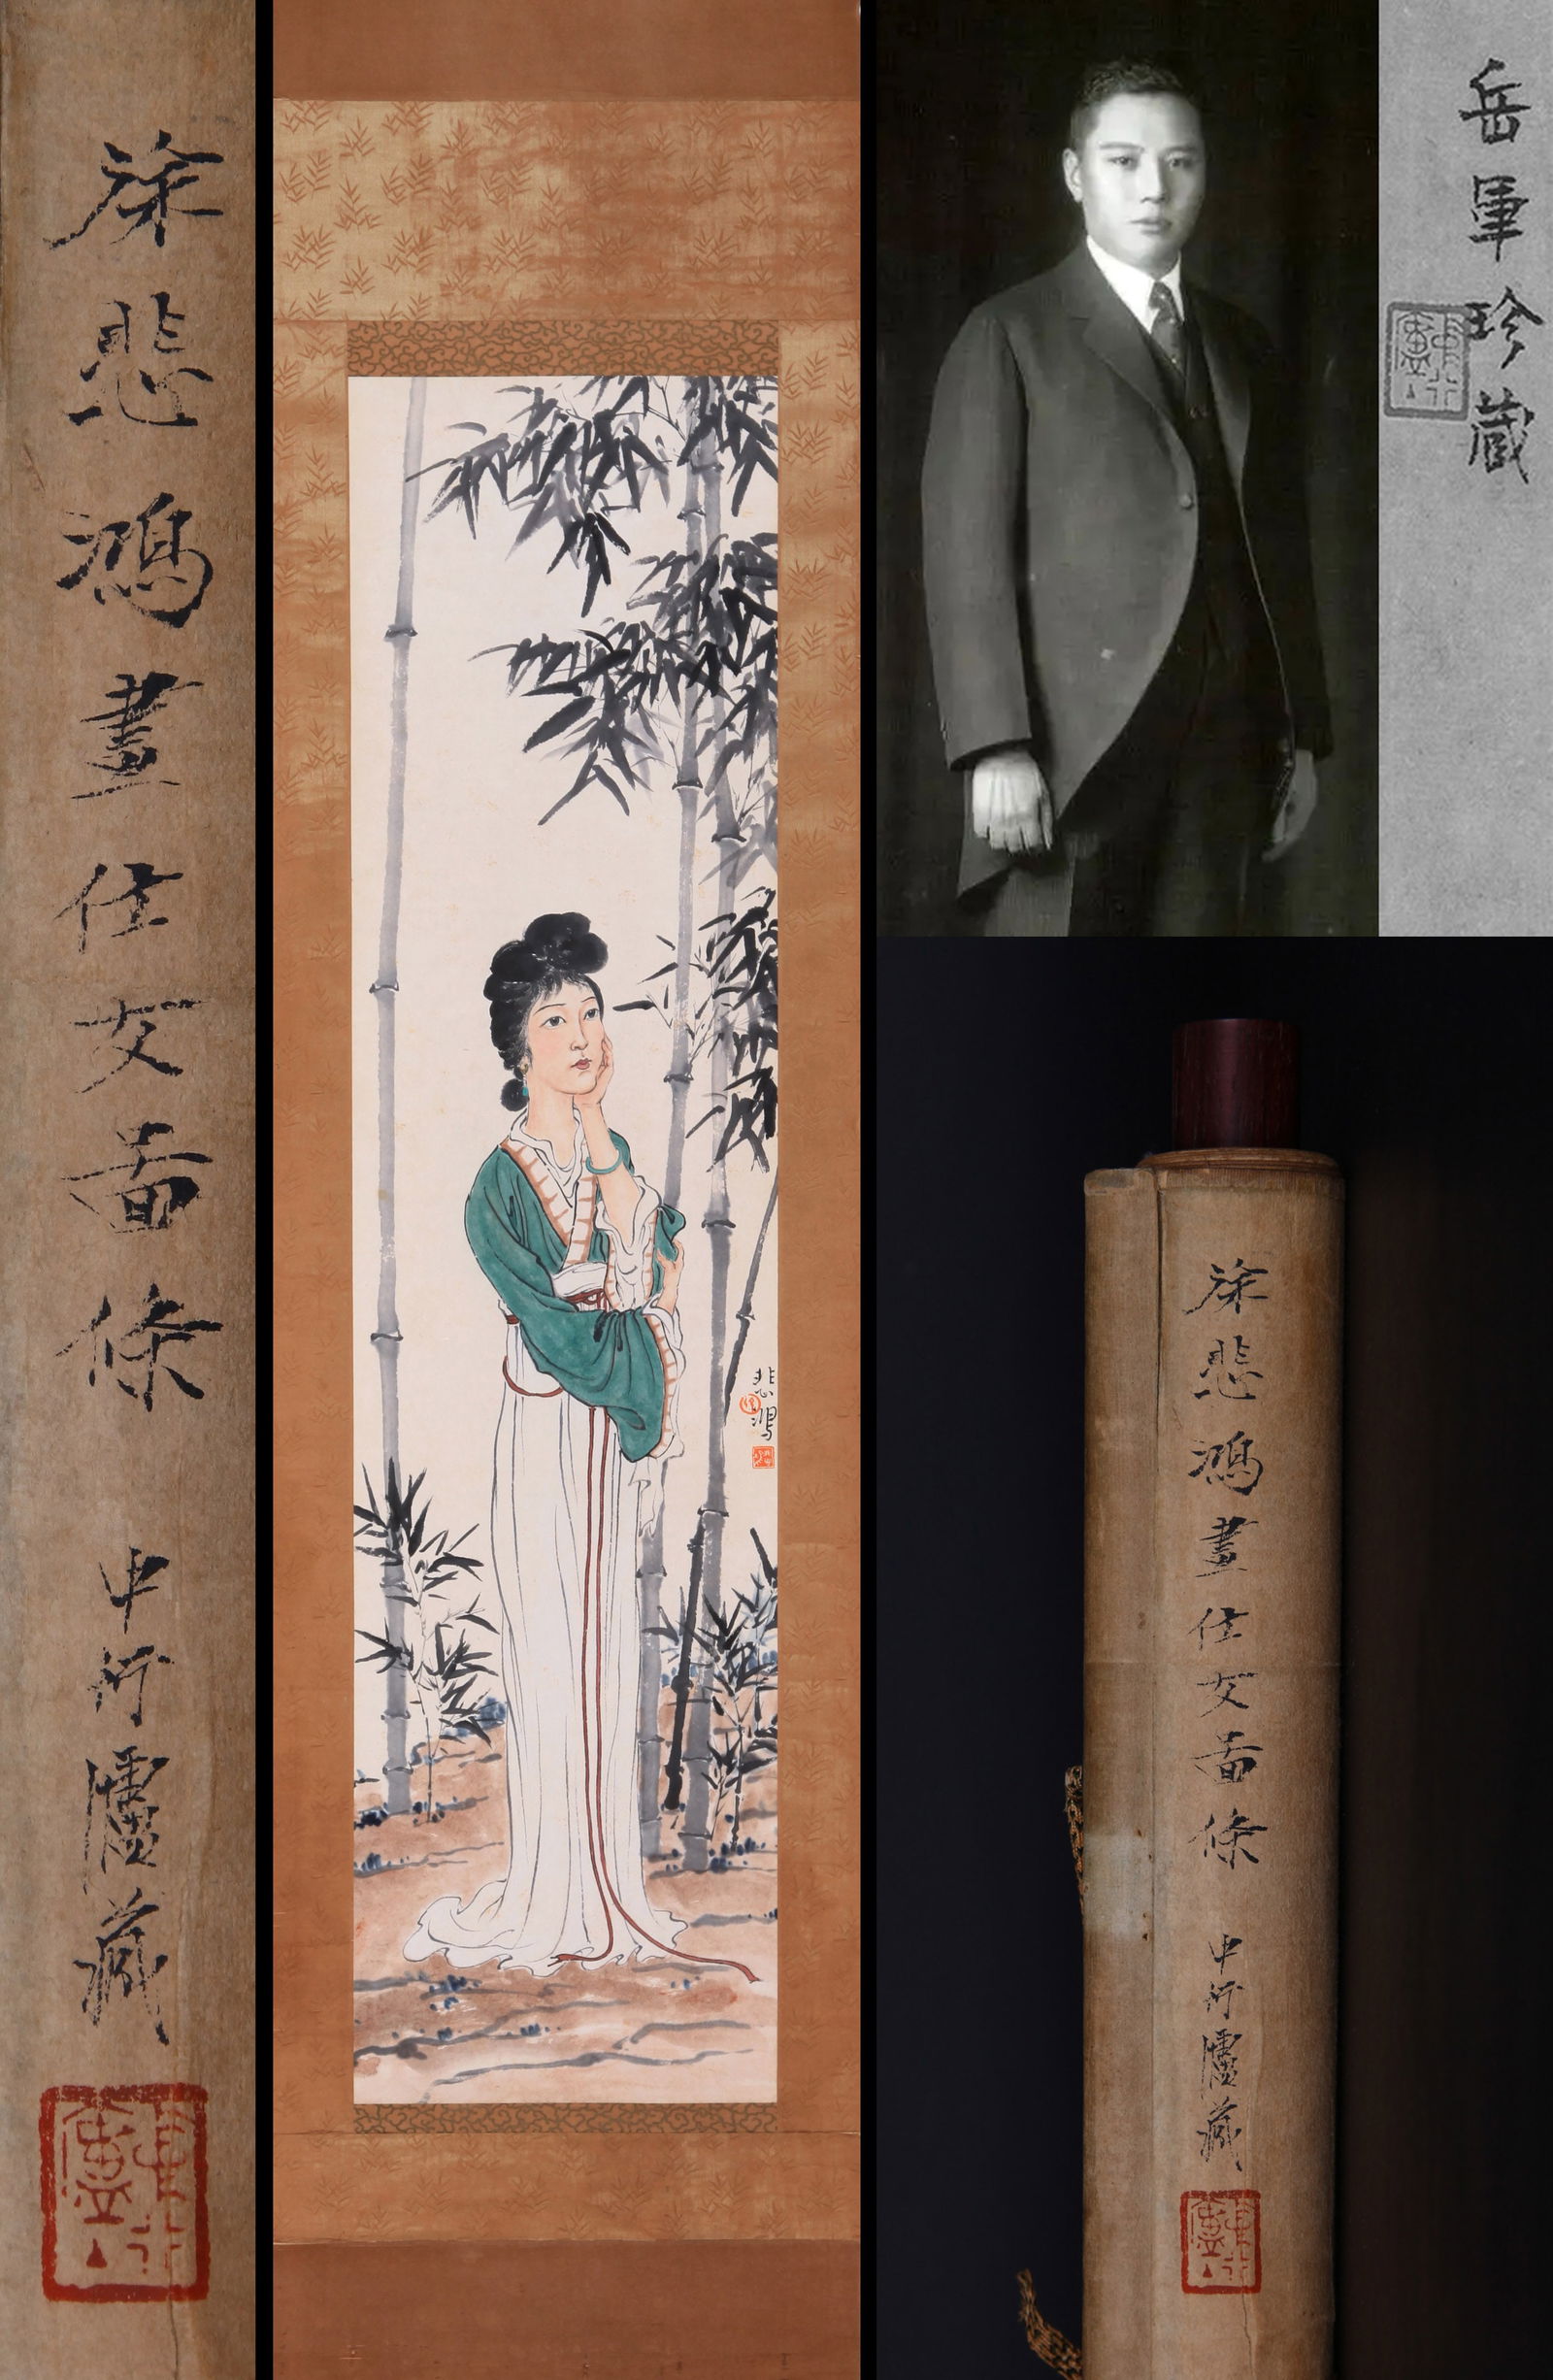 徐悲鴻畫仕女圖條 中行廬藏
悲鴻
岳軍珍藏
徐悲鴻畫仕女圖條 中行廬藏